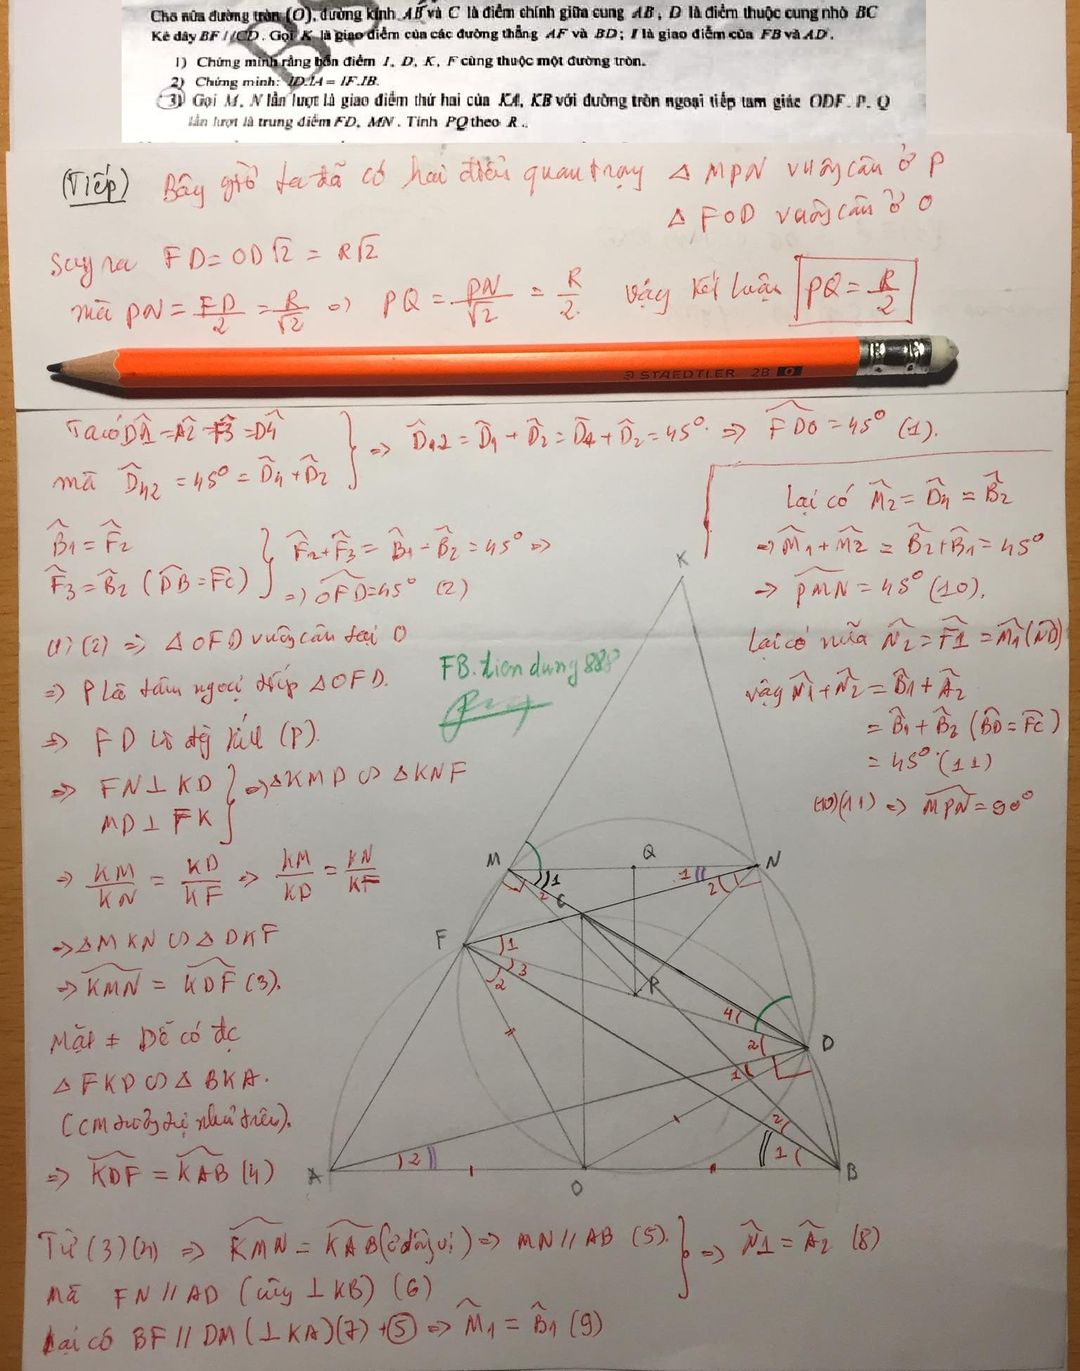 Cho nửa đường tròn (O), đường kính AB và C là điểm chính giữa cung AB, D là điểm thuộc cung nhỏ BC
Kẻ dây BF // CD. Gọi K là giao điểm của các đường thẳng AF và BD; I là giao điểm của FB và AD.
1) Chứng minh rằng bốn điểm I, D, K, F cùng thuộc một đường tròn.
2) Chứng minh: ID.IA = IF.IB.
3) Gọi M, N lần lượt là giao điểm thứ hai của KA, KB với đường tròn ngoại tiếp tam giác ODF. P, Q
lần lượt là trung điểm FD, MN. Tính PQ theo R.
(Tiếp) Bây giờ ta đã có hai điều quan trọng Δ MPN vuông cân ở P
Δ FOD vuông cân ở O
Suy ra FD = OD√2 = R√2
mà PN = FD/2 = R/√2 => PQ = PN/√2 = R/2 Vậy kết luận PQ = R/2
STAEDTLER 2B 0
Ta có D̂1 = Â2 = F̂3 = D̂4
mà D̂42 = 45° = D̂4 + D̂2
=> D̂12 = D̂1 + D̂2 = D̂4 + D̂2 = 45° => FDO = 45° (1).
B̂1 = F̂2
F̂3 = B̂2 (DB = FC)
F̂2 + F̂3 = B̂1 + B̂2 = 45° =>
=> OFD = 45° (2)
(1) (2) => Δ OFD vuông cân tại O
=> P là tâm ngoại tiếp Δ OFD.
=> FD là đg kính (P).
=> FN ⊥ KD
MD ⊥ FK
=> Δ KMD ∽ Δ KNF
=> KM/KN = KD/KF => KM/KD = KN/KF
=> Δ MKN ∽ Δ DKF
=> KMN = KDF (3).
Mặt ≠ Dễ có đc
Δ FKD ∽ Δ BKA.
(CM tương tự như trên).
=> KDF = KAB (4)
Lại có M̂2 = D̂4 = B̂2
=> M̂1 + M̂2 = B̂2 + B̂1 = 45°
=> PMN = 45° (10).
Lại có nữa N̂2 = F̂1 = M̂1 (ND)
Vậy N̂1 + N̂2 = B̂1 + Â2
= B̂1 + B̂2 (BD = FC)
= 45° (11)
(10)(11) => MPN = 90°
FB. tiendung888
K
M
Q
N
C
F
P
D
A
O
B
Từ (3)(4) => KMN = KAB (ở đồng vị) => MN // AB (5).
Mà FN // AD (cùng ⊥ KB) (6)
=> N̂1 = Â2 (8)
Lại có BF // DM (⊥ KA) (7) + (5) => M̂1 = B̂1 (9)